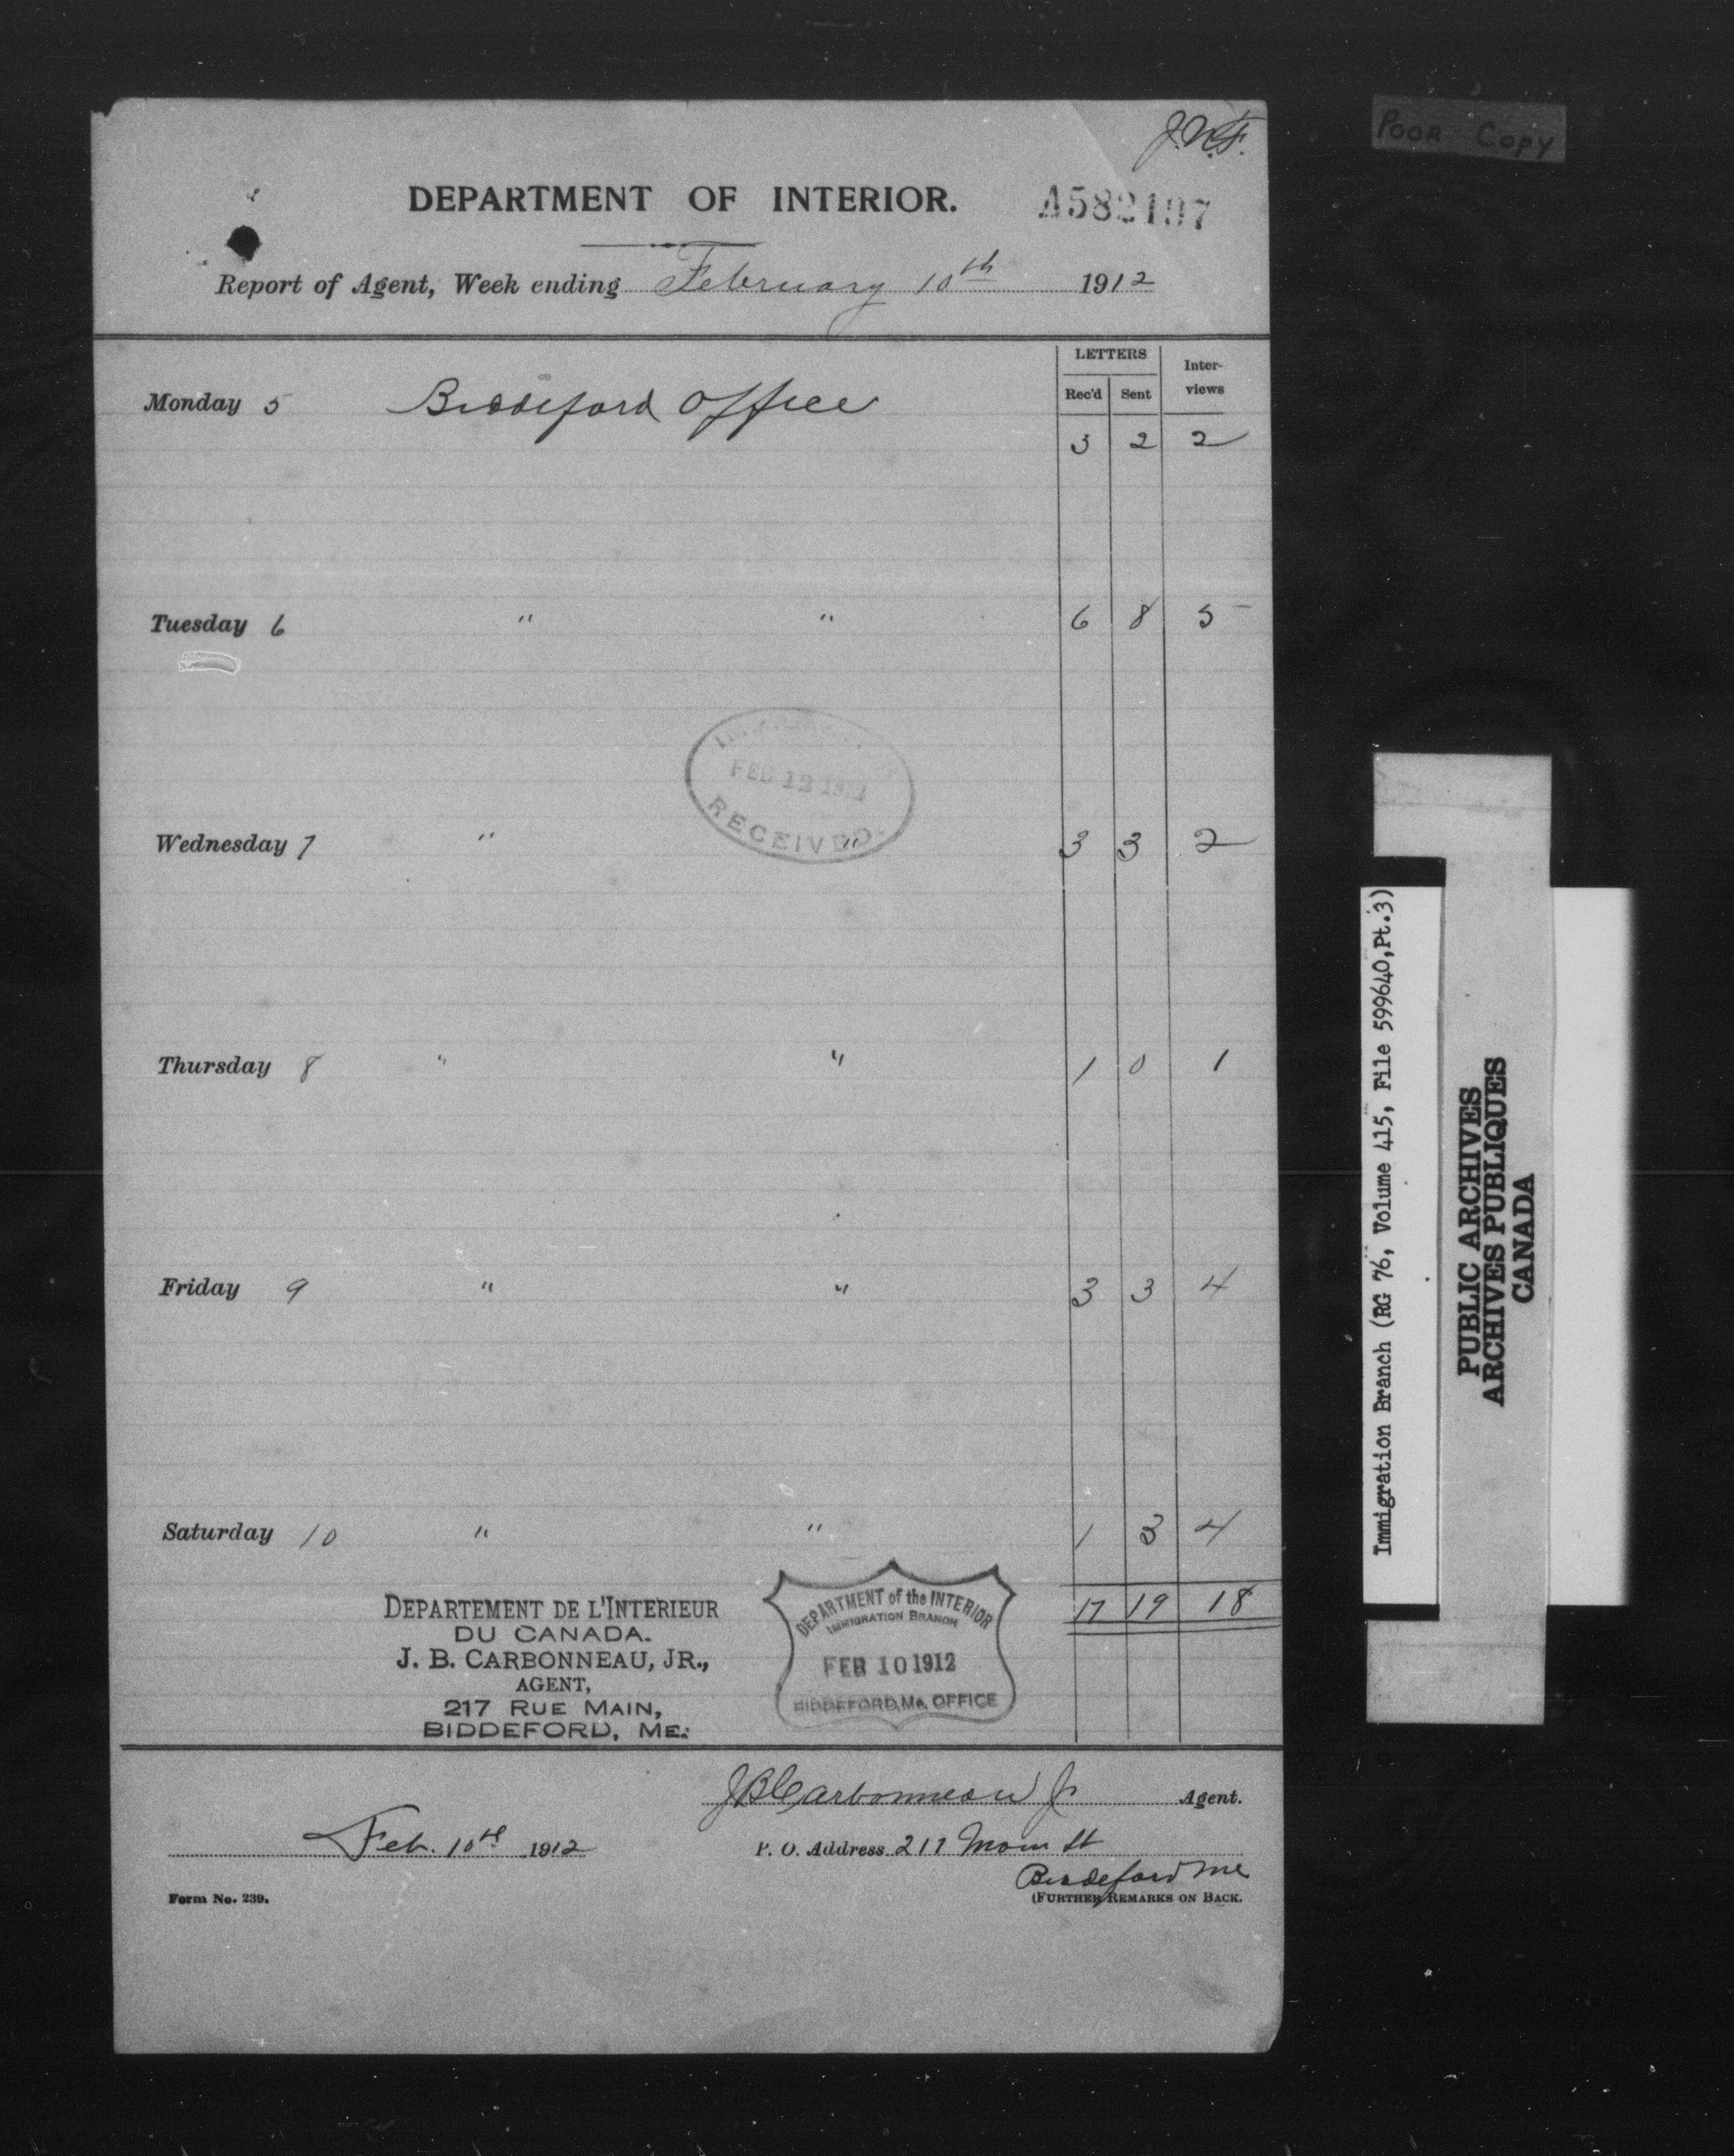 J.N.F.
POOR COPY
DEPARTMENT OF INTERIOR.
A582197
Report of Agent, Week ending February 10th 1912
LETTERS
Rec'd Sent Inter-
views
Monday 5 Biddeford Office
3 2 2
Tuesday 6 " " 6 8 5
FEB 13
RECEIVED
Wednesday 7 " " 3 3 2
Thursday 8 " " 1 0 1
Friday 9 " " 3 3 4
Saturday 10 " " 1 3 4
17 19 18
DEPARTEMENT DE L'INTERIEUR
DU CANADA.
J. B. CARBONNEAU, JR.,
AGENT,
217 RUE MAIN,
BIDDEFORD, ME.
DEPARTMENT of the INTERIOR
IMMIGRATION BRANCH
FEB 10 1912
BIDDEFORD, Me. OFFICE
J B Carbonneau Jr Agent.
Feb. 10th 1912
P. O. Address 217 Main St
Biddeford Me
Form No. 239.
(FURTHER REMARKS ON BACK.
Immigration Branch (RG 76, Volume 415, File 599640,Pt.3)
PUBLIC ARCHIVES
ARCHIVES PUBLIQUES
CANADA